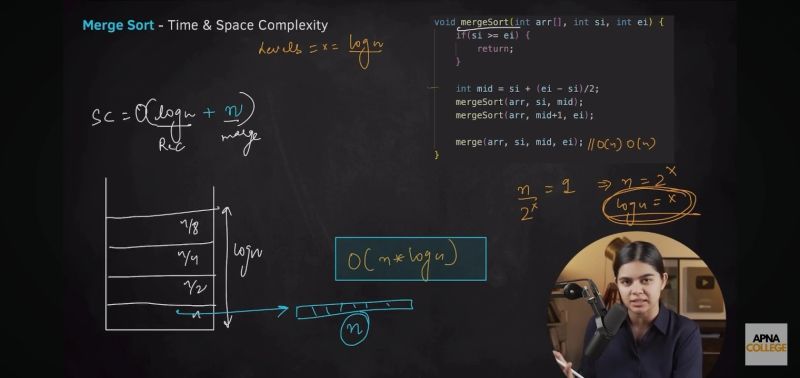 Merge Sort - Time & Space Complexity
Levels = x = logn
SC = O(logn + n)
Rec
merge
void mergeSort(int arr[], int si, int ei) {
if(si >= ei) {
return;
}
int mid = si + (ei - si)/2;
mergeSort(arr, si, mid);
mergeSort(arr, mid+1, ei);
merge(arr, si, mid, ei); //O(n) O(n)
}
n/2^x = 1 ⇒ n = 2^x
logn = x
n/8
n/4
n/2
n
logn
O(n*logn)
n
APNA
COLLEGE